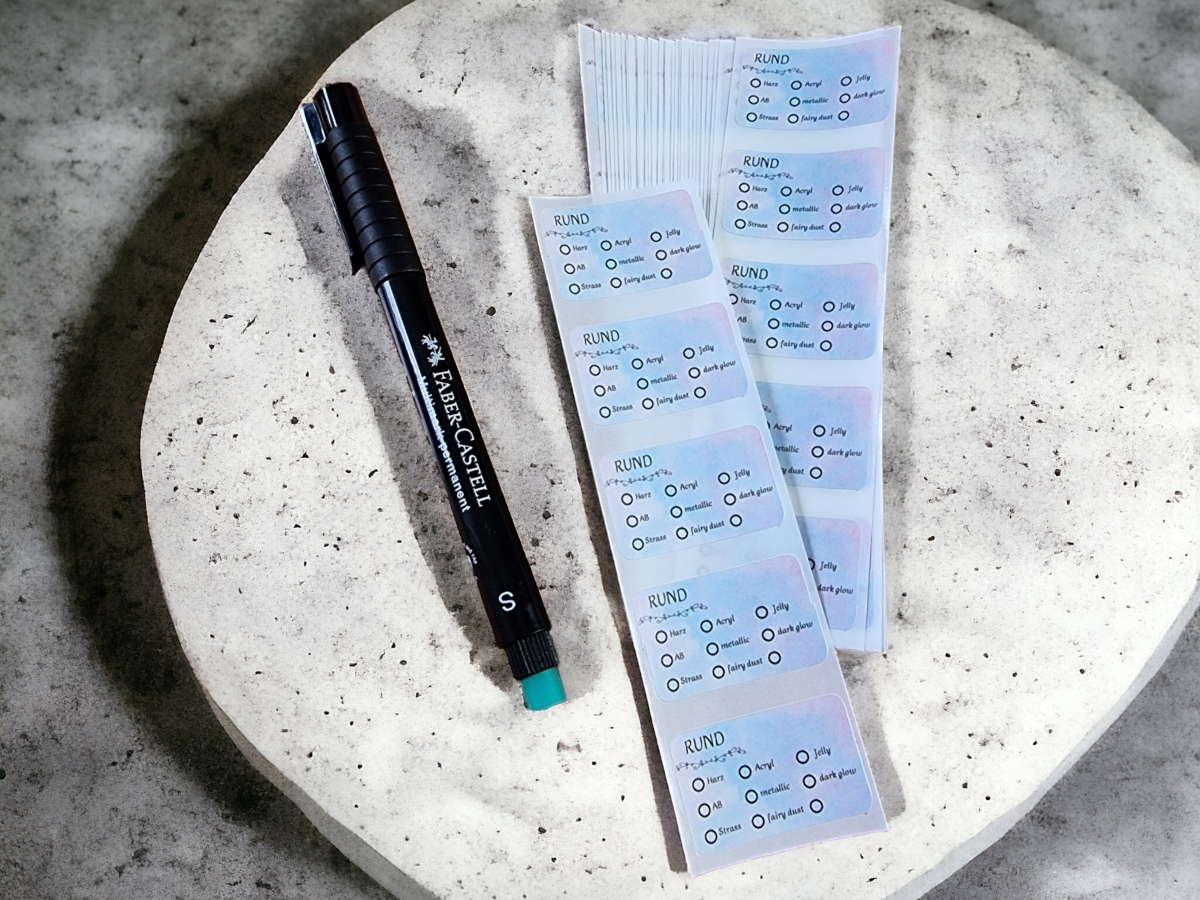 FABER-CASTELL
Multimark permanent
S
RUND
Harz Acryl Jelly
AB metallic dark glow
Strass fairy dust
RUND
Harz Acryl Jelly
AB metallic dark glow
Strass fairy dust
RUND
Harz Acryl Jelly
AB metallic dark glow
Strass fairy dust
RUND
Harz Acryl Jelly
AB metallic dark glow
Strass fairy dust
RUND
Harz Acryl Jelly
AB metallic dark glow
Strass fairy dust
RUND
Harz Acryl Jelly
AB metallic dark glow
Strass fairy dust
RUND
Harz Acryl Jelly
AB metallic dark glow
Strass fairy dust
RUND
Harz Acryl Jelly
AB metallic dark glow
fairy dust
Jelly
dark glow
dust
Jelly
dark glow